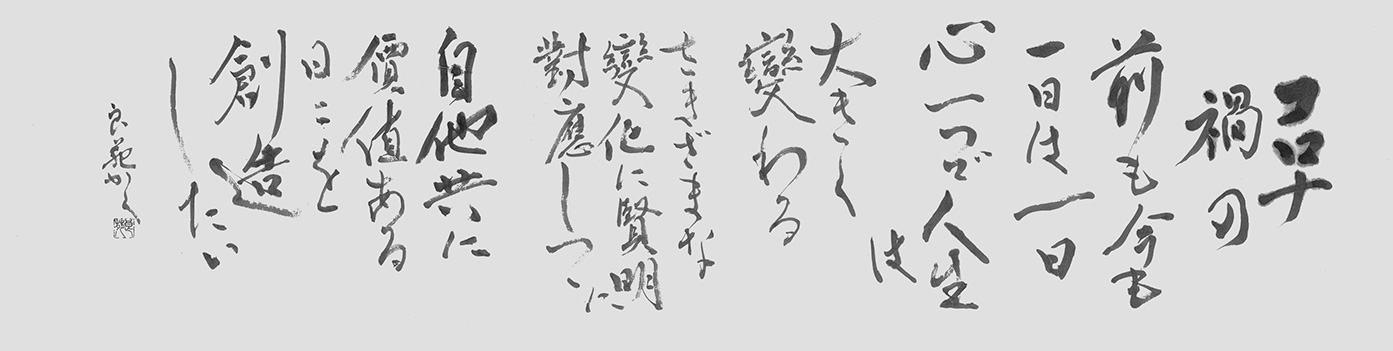 コロナ
禍の
前も今も
一日は一日
心一つで人生
は
大きく
變わる
さまざまな
變化に賢明に
對應しつゝ
自他共に
價値ある
日々を
創造
したい
良苑かく